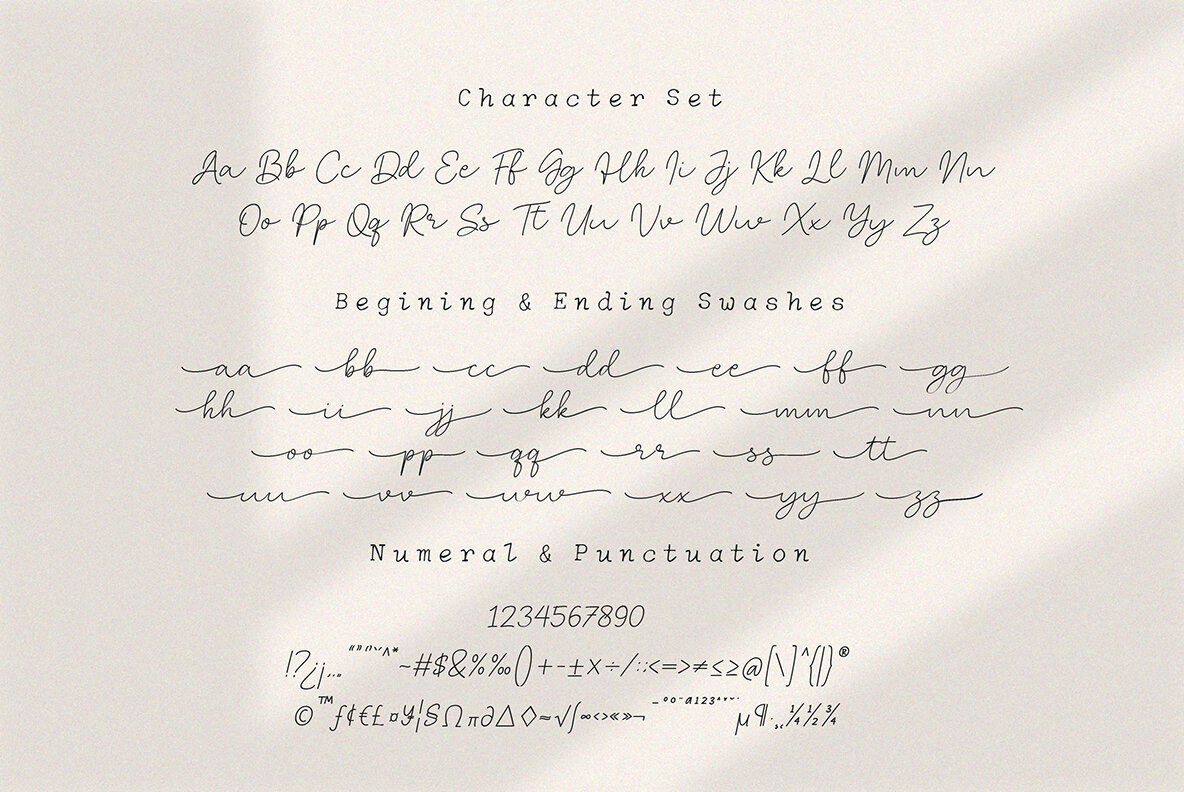 Character Set
Aa Bb Cc Dd Ee Ff Gg Hh Ii Jj Kk Ll Mm Nn
Oo Pp Qq Rr Ss Tt Uu Vv Ww Xx Yy Zz
Begining & Ending Swashes
aa bb cc dd ee ff gg
hh ii jj kk ll mm nn
oo pp qq rr ss tt
uu vv ww xx yy zz
Numeral & Punctuation
1234567890
!?¿¡,..."“”‘’ˇ^*~#$&%‰()+-±×÷/:;<=>≠≤≥@[\]^{|}®
©™ƒ¢€£¤¥¦§Ωπ∂∆◊≈√∫∞‹›«»¬¯°º¨ª123 µ¶·¸¼½¾